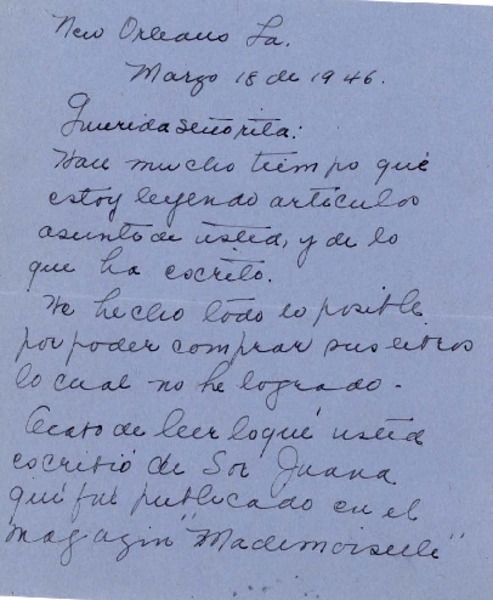 New Orleans La.
Marzo 18 de 1946.
Querida Señorita:
Hace mucho tiempo que
estoy leyendo articulos
asunto de usted, y de lo
que ha escrito.
He hecho todo lo posible
por poder comprar sus libros
lo cual no he logrado.
Acabo de leer lo que usted
escribió de Sor Juana
que fue publicado en el
magazin "Mademoiselle"